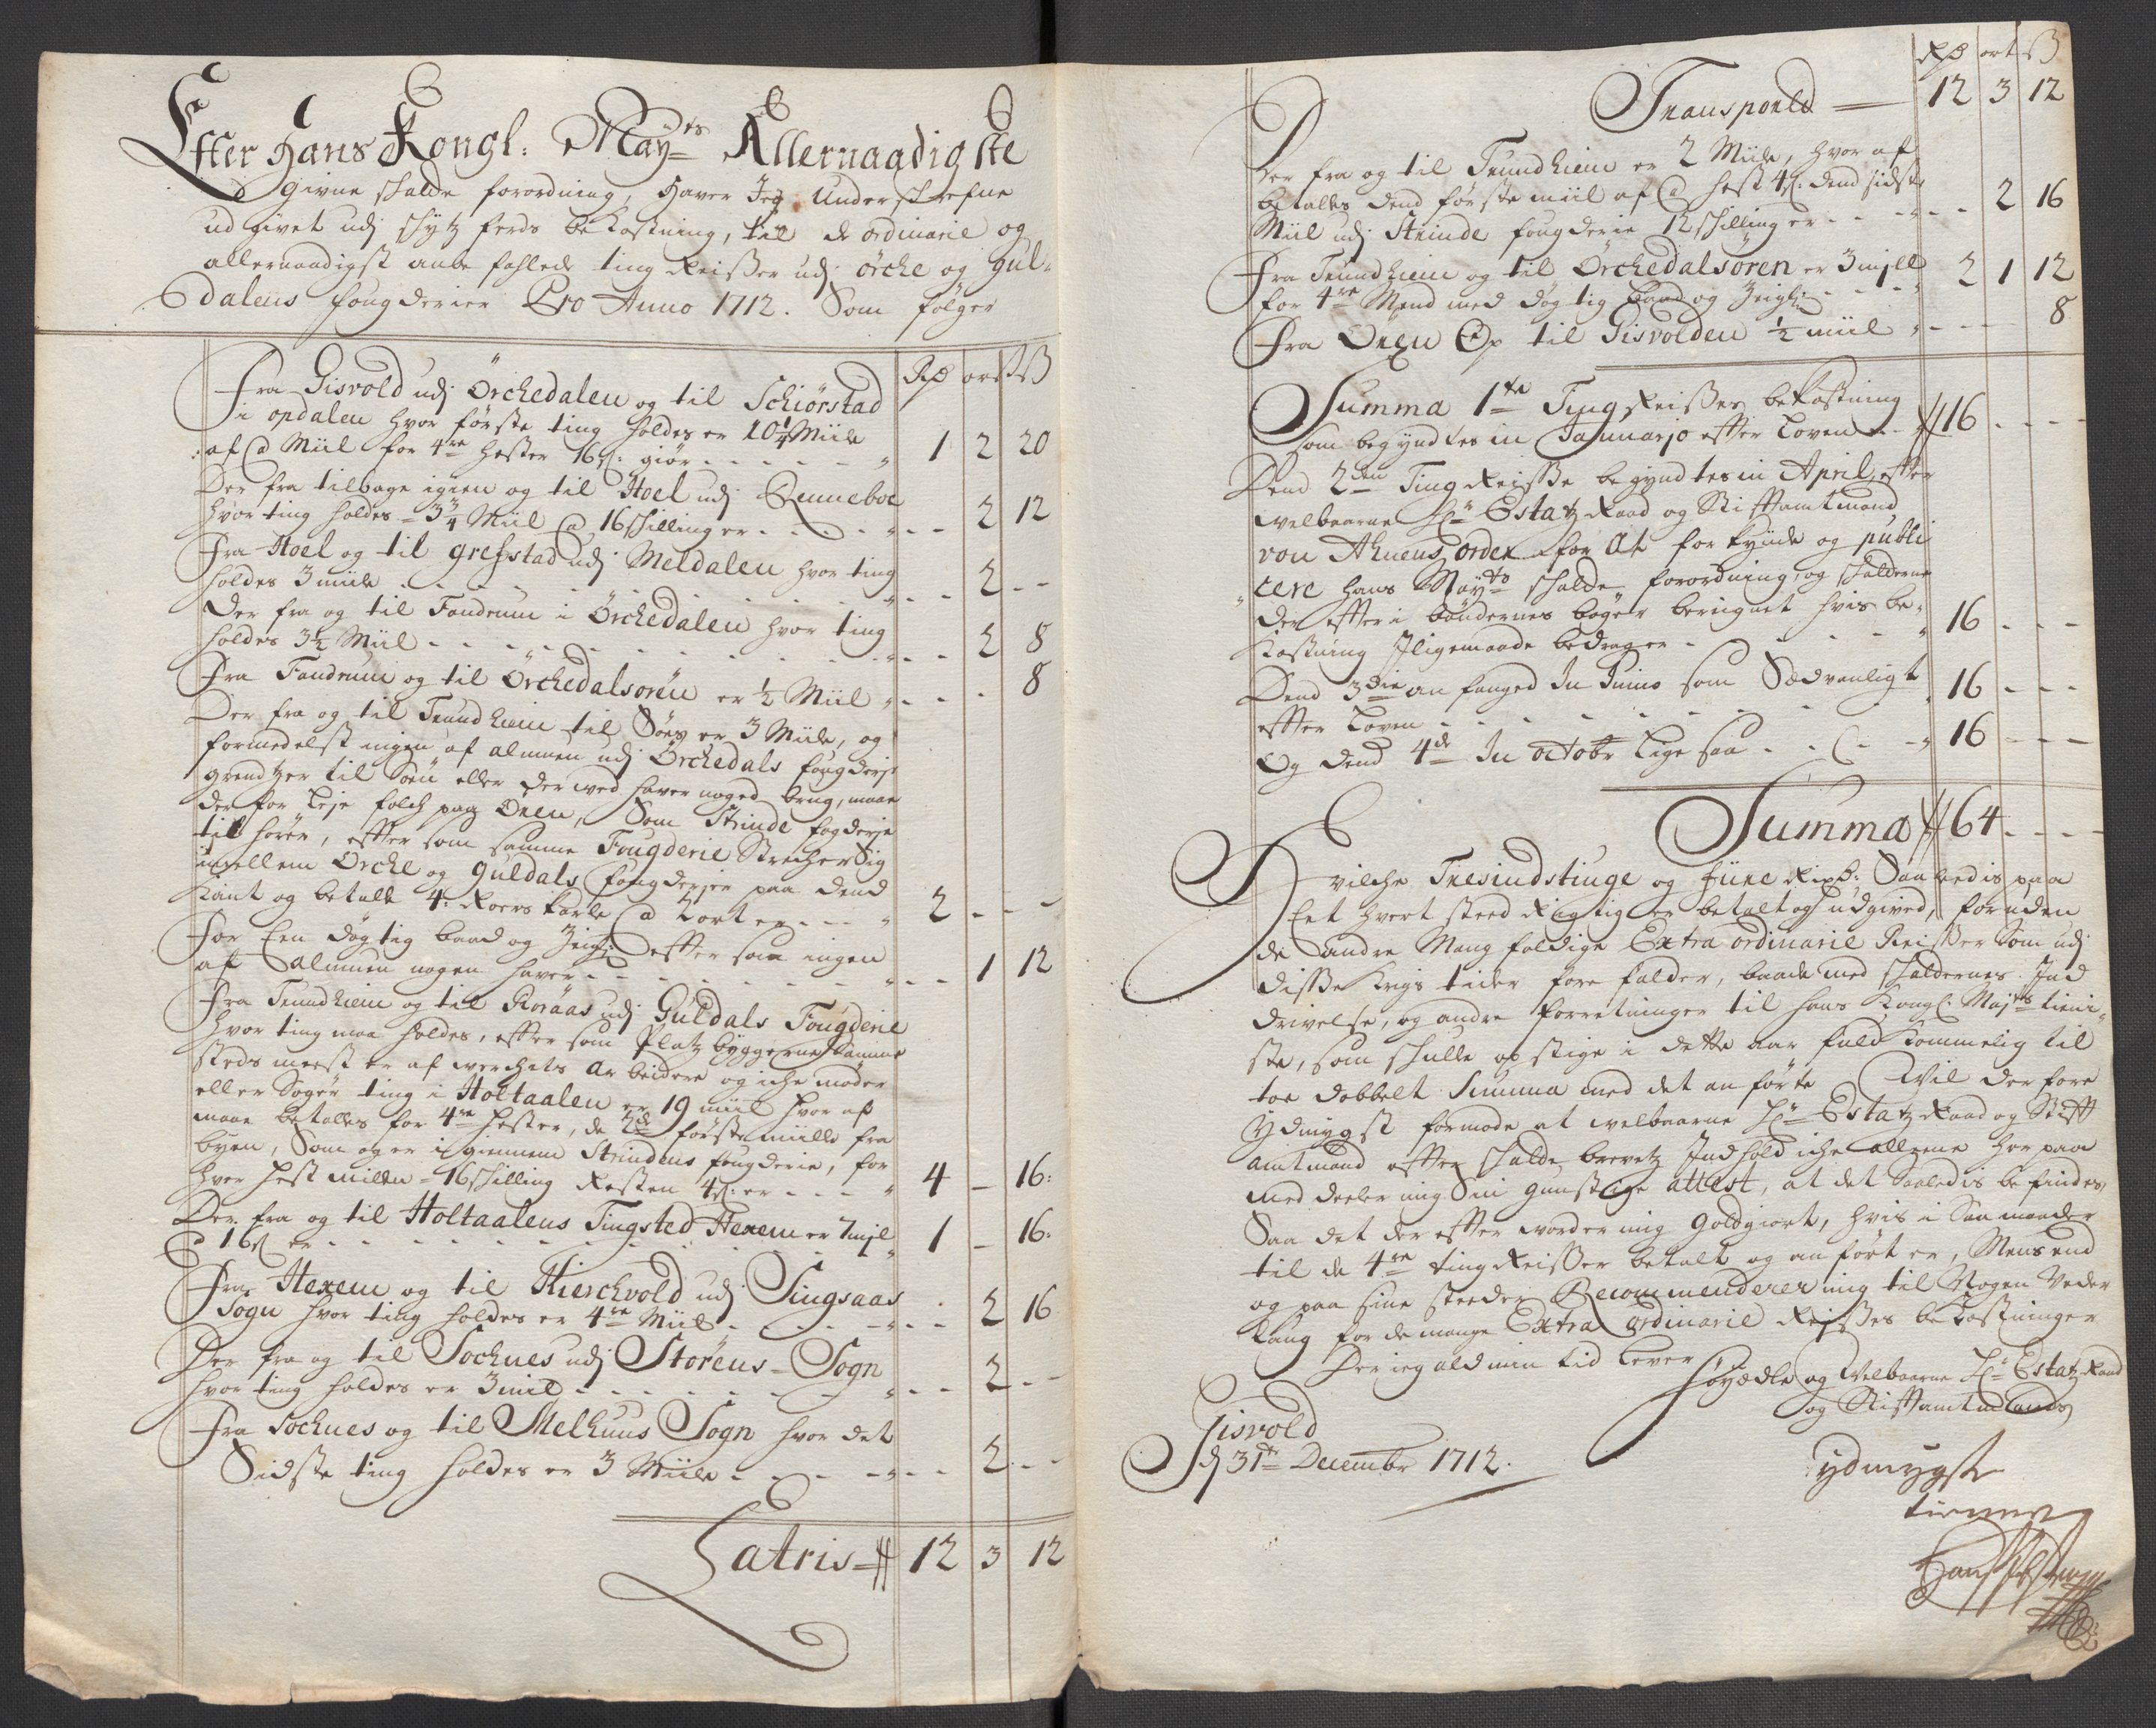 Efter Hans Kongl: Mayts Allernaadigste
givne schalde forordning, Haver Jeg Underschrefne
udgivet udj schytz ferds bekostning, til de ordinarie og
allernaadigst anbefahlede ting Reißer udj Örche og Gul-
dalens fougderier Pro Anno 1712. Som følger
Rd ort ß
Fra Gisvold udj Örchedalen og til Schiörstad
i opdalen hvor første ting holdes er 10¼ Miile
af @ Miil for 4re hester 16 ß: giør - - - 1 2 20
Der fra tilbage igien og til Hoel udj Renneboe
hvor ting holdes = 3¾ Miil @ 16 schilling er - - - 2 12
Fra Hoel og til Grefstad udj Meldalen hvor ting
holdes 3 miile - - - 2 -
Der fra og til Fandrem i Örchedalen hvor ting
holdes 3½ Miil - - - 2 8
Fra Fandrem og til Örchedalsören er ½ Miil - - - 8
Der fra og til Trundhiem til Søes er 3 Miile, og
formedelst ingen af almuen udj Örchedals fougderje
grendtzer til Søen eller der ved haver noged brug, maae
der for leje folch paa Ören, Som Strinde fogderje
til hører, efftersom samme Fougderie Strecher Sig
imellem Örche og Guldals fougderjer paa dend
Kant og betalt 4: Roers karle @ 2 ort er - - - 2 - -
For Een dögtig baad og Zeigl: effter som ingen
af Almuen nogen haver - - - 1 12
Fra Trundhiem og til Roraas udj Guldals Fougderie
hvor ting maa holdes, effter som Platz byggerne samme
steds meest er af werchets Arbeidere og iche møder
eller Søger ting i Holtaalen er 19 miil hvor af
maae betalles for 4re hester, de 2de første miille fra
byen, Som og er igiennem Strindens fougderie, for
hver hest milen = 16 schilling Resten 4 ß: er - - - 4 - 16:
Der fra og til Holtaalens Tingsted Hexem er 7 mjl
@ 16 ß er - - - 1 - 16:
Fra Hexem og til Kierchvold udj Singsaas
Sogn hvor ting holdes er 4re Miil - - - 2 16
Der fra og til Sochnes udj Störens Sogn
hvor ting holdes er 3 miil - - - 2 - -
Fra Sochnes og til Melhuus Sogn hvor det
Sidste ting holdes er 3 Miile - - - 2 - -
Latris 12 3 12
Rd ort ß
Transporld — 12 3 12
Der fra og til Trundhiem er 2 Miile, hvor af
betalles dend første miil af @ hest 4 ß: dend sidste
Miil udj Strinde fougderie 12 schilling er - - - 2 16
Fra Trundhiem og til Örchedalsören er 3 mjll
for 4re Mend med dögtig baad og Zeigl: - - - 2 1 12
Fra Ören Op til Gisvolden ½ miil - - - 8
Summa 1te Ting Reißes bekostning
som begyndtes in Januarjo effter Loven - - 16 - -
Dend 2den Ting Reiße begyndtes in April, effter
welbaarne Hr Estatz Raad og Stifftamtmand
von Ahnens ordre for At forkynde og publi
cere hans Mayts schalde forordning, og schalderne
der effter i böndernes böger berignet hvis be-
kostning Jligemaade bedrager - - - 16 - - -
Dend 3die anfanged In Junio som Sedvanligt
effter Loven - - - 16 - - -
Og dend 4de In octobr lige saa - - - 16 - - -
Summa 64 - - -
Hvilche Tresindstiuge og fiire Rixd: Saaledis paa
Eet hvert sted Rigtig er betalt og udgived, foruden
de andre Mangfoldige Extra ordinarie Reißer Som udj
diße Krigs tider fore falder, baade med schaldernes Ind
drivelse, og andre forretninger til hans Kongl. Majts tieni-
ste, som schulle opstige i dette aar fuldkommelig til
toe dobbelt Summa med det anførte Vil der fore
Ydmygst formode at welbaarne Hr Estatz Raad og Stifft
amtmand effter schalde brevetz Indhold iche allene her paa
meddeeler mig Sin gunstige Attest, at det Saaledis befindes
Saa det der effter worder mig Godtgiort, hvis i Saa maader
til de 4re ting Reißer betalt og anført er, Mens end
og paa sine steder Recommenderer mig til Nogen Veder
lang for de mange Extra ordinarie Reißes bekostninger
Der ieg ald min tid lever
Höyædle og Velbaarne Hr Estatz Raad
og Stifftamtmands
Gisvold
d 31te Decembr 1712.
ydmygste
tienner